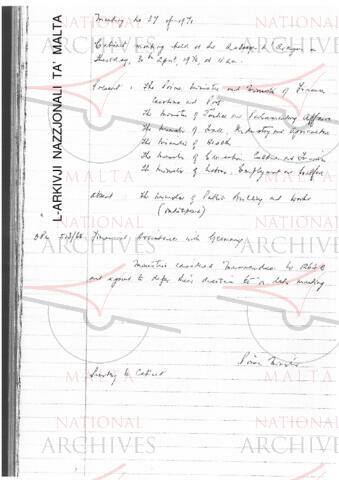 L-ARKIVJI NAZZJONALI TA' MALTA
Meeting No 37 of 1970
Cabinet meeting held at the Auberge d'Aragon on
Thursday, 30th April, 1970, at 11 am.
Present : The Prime Minister and Minister of Finance
Customs and Port
The Minister of Justice and Parliamentary Affairs
The Minister of Trade, Industry and Agriculture
The Minister of Health
The Minister of Education, Culture and Tourism
The Minister of Labour, Employment and Welfare
Absent : The Minister of Public Building and Works
(indisposed)
Financial Assistance with Germany
Ministers considered Memorandum No
and agreed to defer their decision to a later meeting
Prime Minister
Secretary to Cabinet
NATIONAL
ARCHIVES
MALTA
NATIONAL
ARCHIVES
MALTA
NATIONAL
ARCHIVES